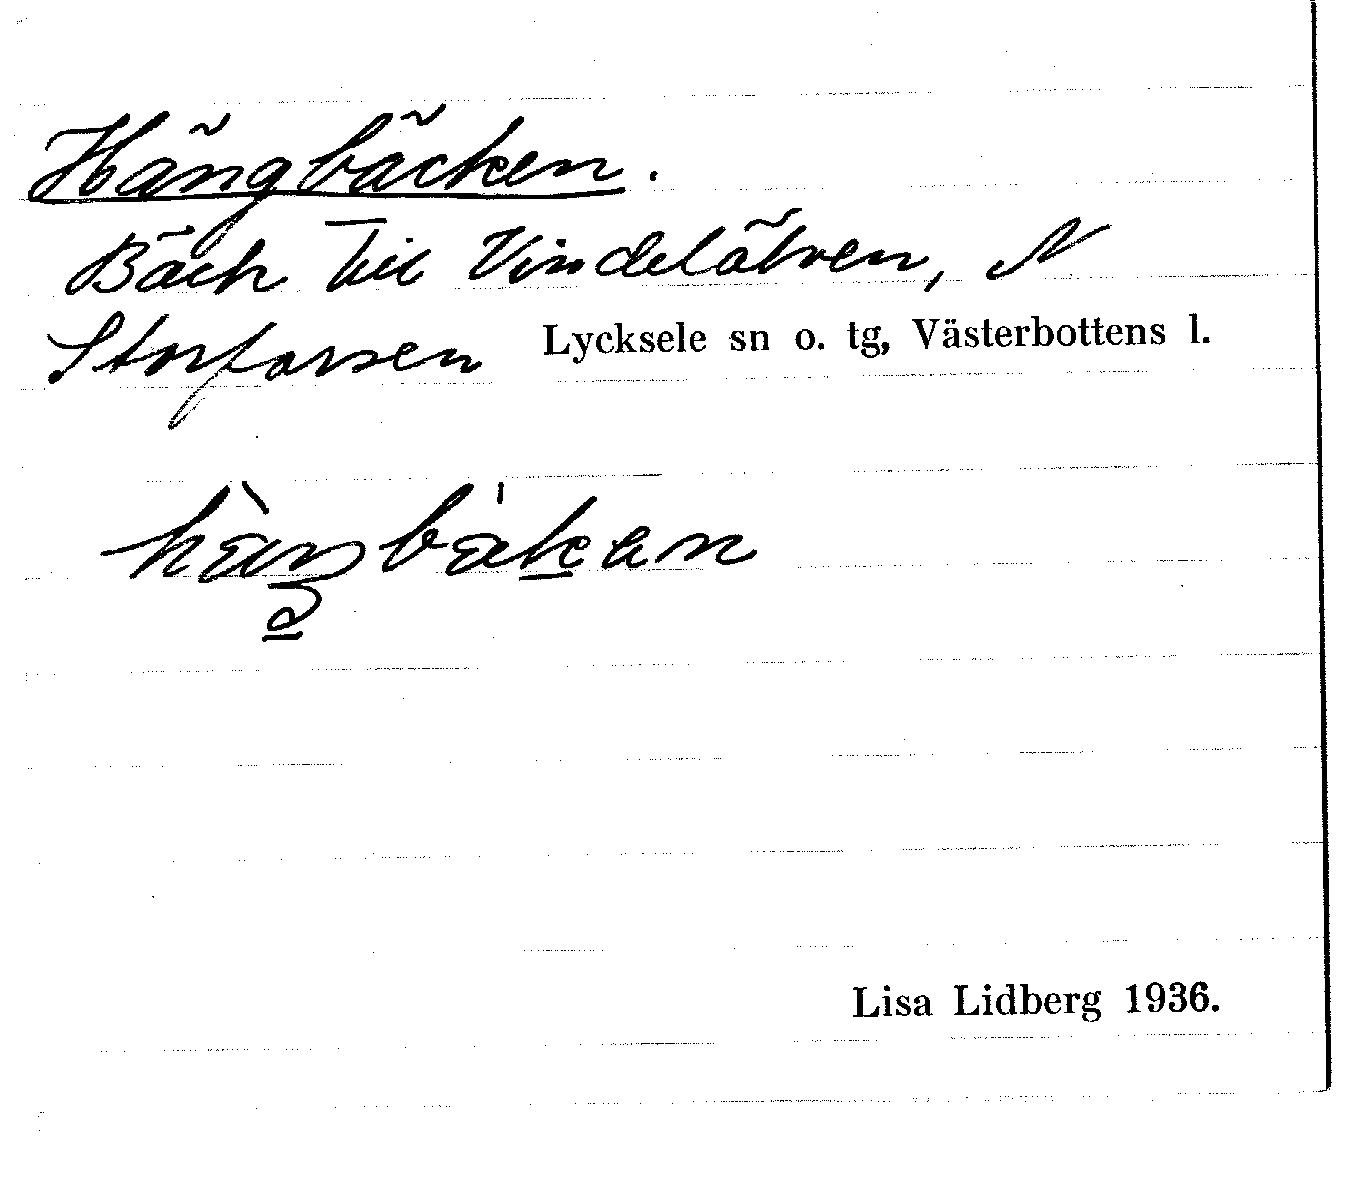 Hängbäcken.
Bäck till Vindelälven, N
Storforsen Lycksele sn o. tg, Västerbottens l.
Lisa Lidberg 1936.